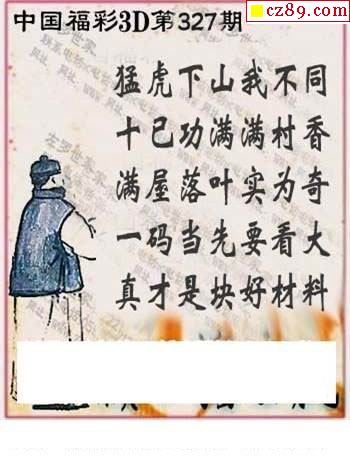 cz89.com
中国福彩3D第327期
猛虎下山我不同
十已功满满村香
满屋落叶实为奇
一码当先要看大
真才是块好材料